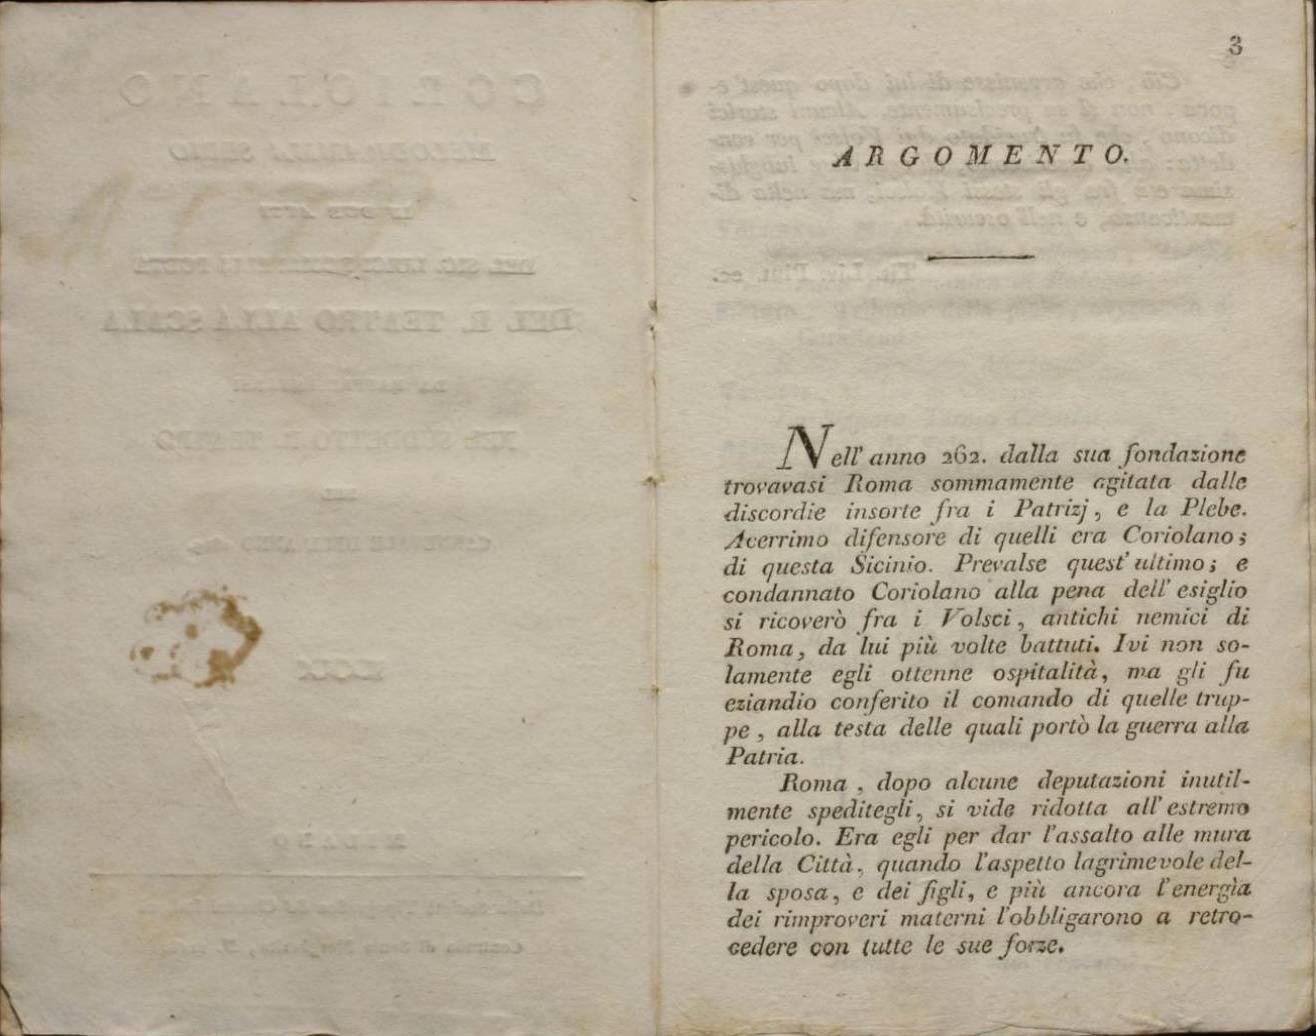 3
ARGOMENTO.
Nell' anno 262. dalla sua fondazione
trovavasi Roma sommamente agitata dalle
discordie insorte fra i Patrizj, e la Plebe.
Acerrimo difensore di quelli era Coriolano;
di questa Sicinio. Prevalse quest' ultimo; e
condannato Coriolano alla pena dell' esiglio
si ricoverò fra i Volsci, antichi nemici di
Roma, da lui più volte battuti. Ivi non so-
lamente egli ottenne ospitalità, ma gli fu
eziandio conferito il comando di quelle trup-
pe, alla testa delle quali portò la guerra alla
Patria.
Roma, dopo alcune deputazioni inutil-
mente speditegli, si vide ridotta all' estremo
pericolo. Era egli per dar l'assalto alle mura
della Città, quando l'aspetto lagrimevole del-
la sposa, e dei figli, e più ancora l'energìa
dei rimproveri materni l'obbligarono a retro-
cedere con tutte le sue forze.